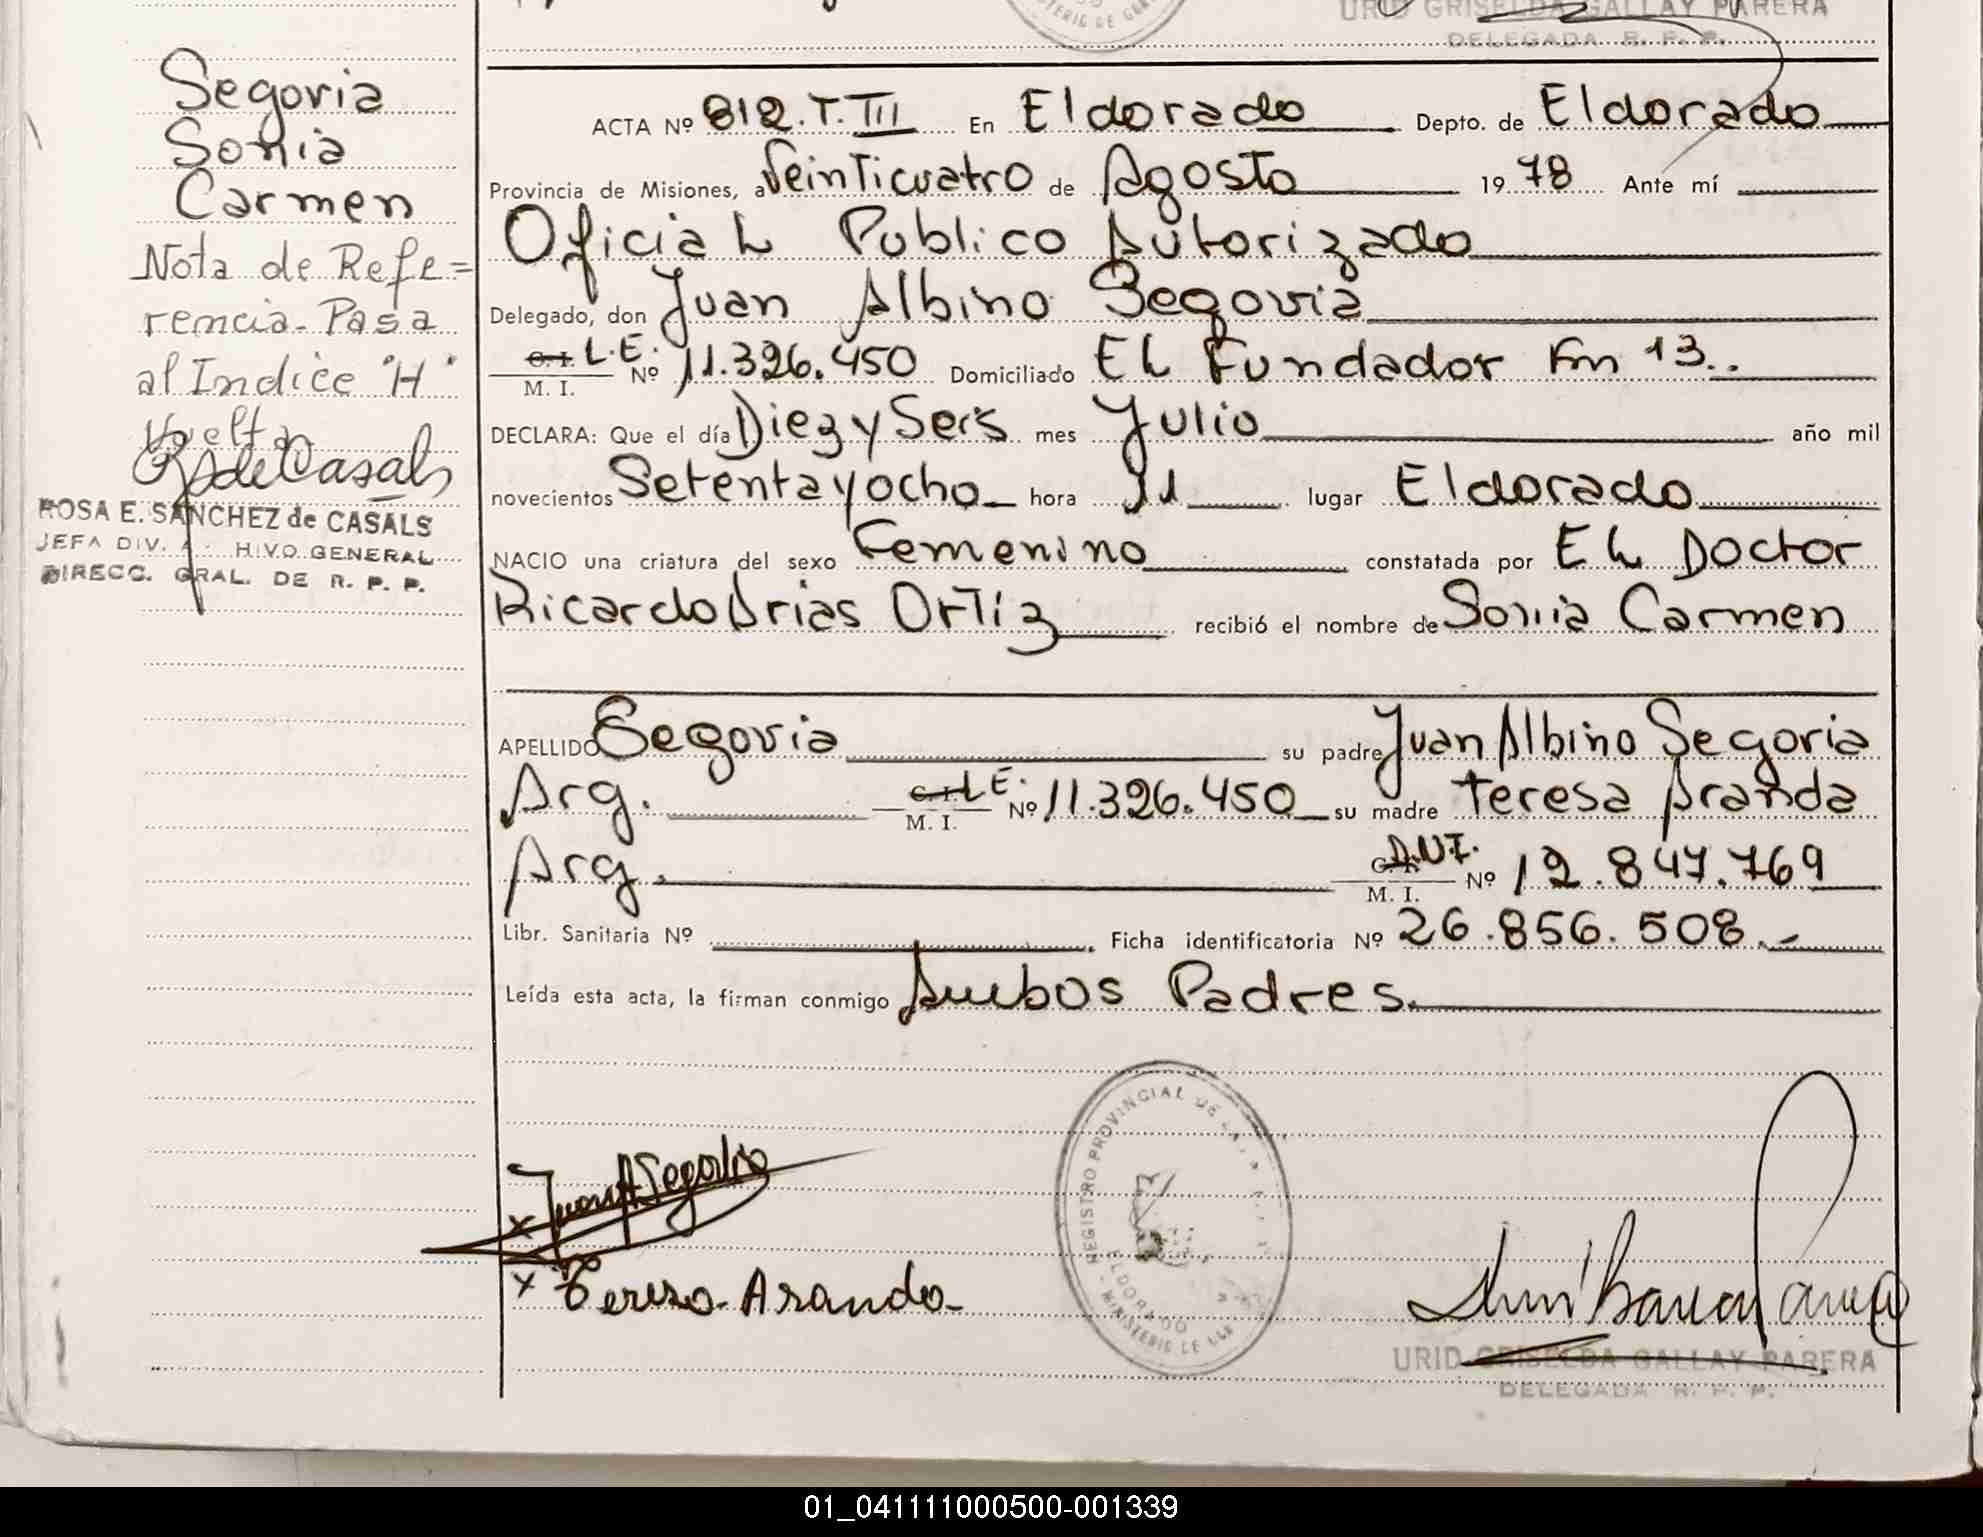 URID GRISELDA GALLAY PARERA
DELEGADA R. P. P.
Segovia
Sonia
Carmen
Nota de Refe=
rencia. Pasa
al Indice "H"
Vuelta
RSdeCasals
ROSA E. SANCHEZ de CASALS
JEFA DIV. A HIVO GENERAL
DIRECC. GRAL. DE R. P. P.
ACTA Nº 812.T.III En Eldorado Depto. de Eldorado
Provincia de Misiones, a Veinticuatro de Agosto 1978 Ante mí
Oficial Publico Autorizado
Delegado, don Juan Albino Segovia
C.I. L.E. M. I. Nº 11.326.450 Domiciliado El Fundador Km 13..
DECLARA: Que el día Diez y Seis mes Julio año mil
novecientos Setenta y ocho hora 21 lugar Eldorado
NACIO una criatura del sexo Femenino constatada por El Doctor
Ricardo Arias Ortiz recibió el nombre de Sonia Carmen
APELLIDO Segovia su padre Juan Albino Segovia
Arg. C.I. L.E. M. I. Nº 11.326.450 su madre Teresa Aranda
Arg. C.I. D.N.I. M. I. Nº 12.847.769
Libr. Sanitaria Nº Ficha identificatoria Nº 26.856.508.-
Leída esta acta, la firman conmigo Ambos Padres.
REGISTRO PROVINCIAL DE LA
ELDORADO
MINISTERIO DE GOB
x Juan A Segovia
x Teresa Aranda
URID GRISELDA GALLAY PARERA
DELEGADA R. P. P.
01_041111000500-001339